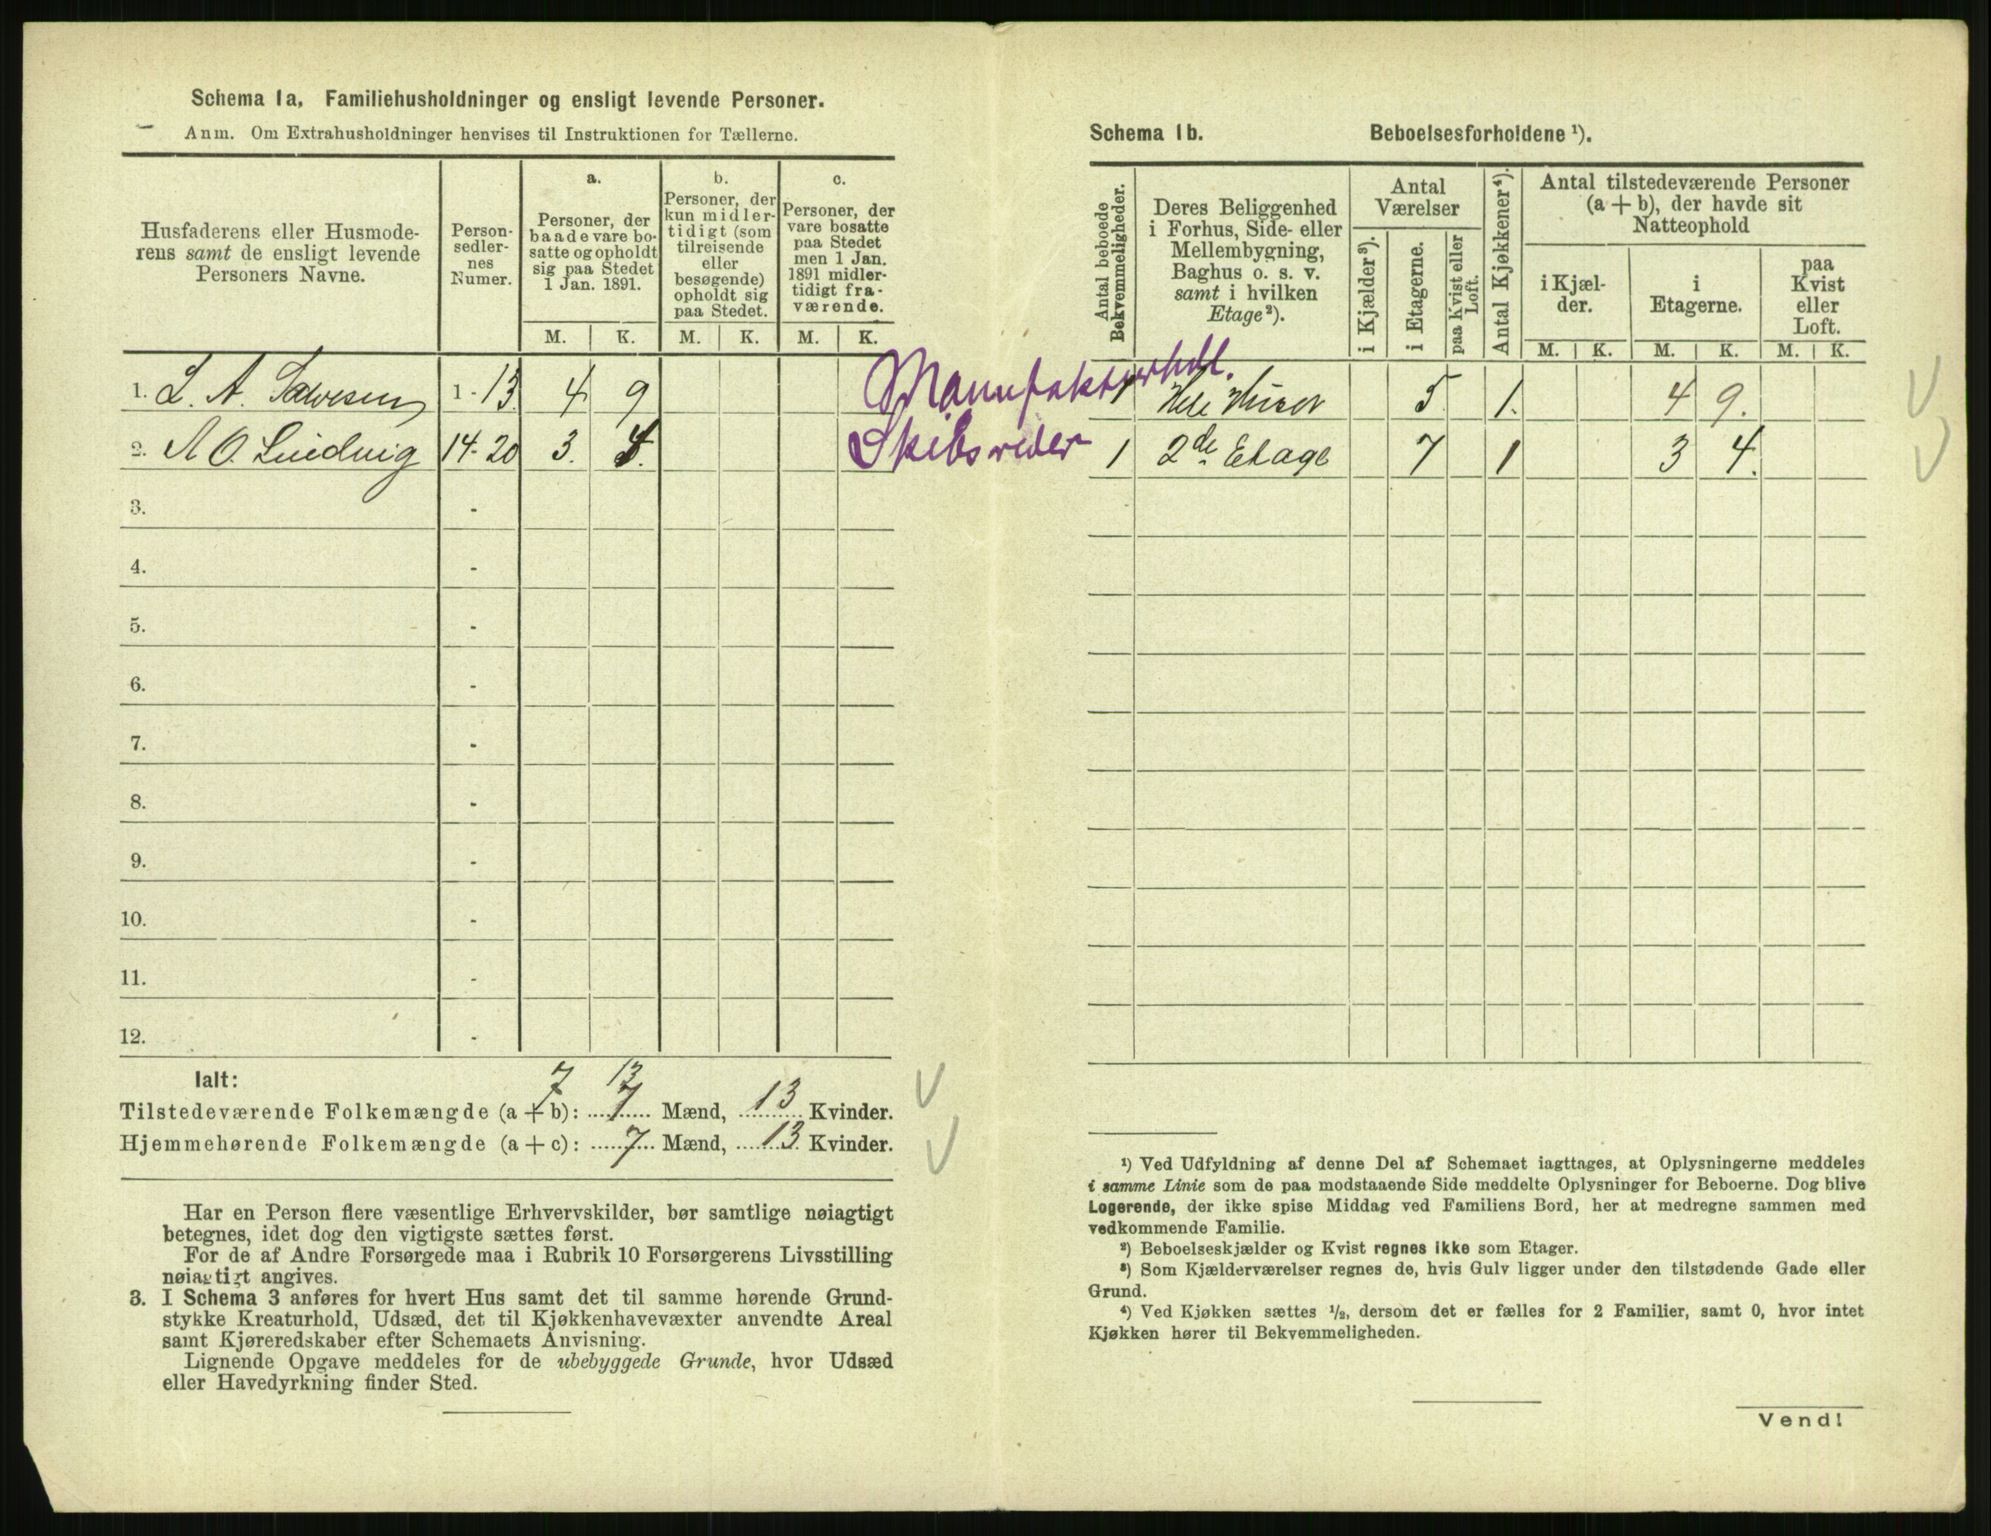 Schema 1a. Familiehusholdninger og ensligt levende Personer.
Anm. Om Extrahusholdninger henvises til Instruktionen for Tællerne.
Husfaderens eller Husmode-
rens samt de ensligt levende
Personers Navne.
Person-
sedler-
nes
Numer.
a.
Personer, der
baade vare bo-
satte og opholdt
sig paa Stedet
1 Jan. 1891.
b.
Personer, der
kun midler-
tidigt (som
tilreisende
eller
besøgende)
opholdt sig
paa Stedet.
c.
Personer, der
vare bosatte
paa Stedet
men 1 Jan.
1891 midler-
tidigt fra-
værende.
M. K. M. K. M. K.
1. L. A. Salvesen 1-13. 4 9 Manufakturhdl.
2. A O. Ludvig 14-20 3. 4. Skibsreder
3. -
4. -
5. -
6. -
7. -
8. -
9. -
10. -
11. -
12. -
Ialt: 7 13
Tilstedeværende Folkemængde (a + b): 7 Mænd, 13 Kvinder.
Hjemmehørende Folkemængde (a + c): 7 Mænd, 13 Kvinder.
Har en Person flere væsentlige Erhvervskilder, bør samtlige nøiagtigt
betegnes, idet dog den vigtigste sættes først.
For de af Andre Forsørgede maa i Rubrik 10 Forsørgerens Livsstilling
nøiagtigt angives.
3. I Schema 3 anføres for hvert Hus samt det til samme hørende Grund-
stykke Kreaturhold, Udsæd, det til Kjøkkenhavevæxter anvendte Areal
samt Kjøreredskaber efter Schemaets Anvisning.
Lignende Opgave meddeles for de ubebyggede Grunde, hvor Udsæd
eller Havedyrkning finder Sted.
Schema 1b. Beboelsesforholdene ¹).
Antal beboede
Bekvemmeligheder.
Deres Beliggenhed
i Forhus, Side- eller
Mellembygning,
Baghus o. s. v.
samt i hvilken
Etage²).
Antal
Værelser
i Kjælder³).
i Etagerne.
paa Kvist eller
Loft.
Antal Kjøkkener⁴).
Antal tilstedeværende Personer
(a + b), der havde sit
Natteophold
i Kjæl-
der.
i
Etagerne.
paa
Kvist
eller
Loft.
M. K. M. K. M. K.
1 Hele Huset 5 1. 4 9.
1 2de Etage 7 1 3 4.
¹) Ved Udfyldning af denne Del af Schemaet iagttages, at Oplysningerne meddeles
i samme Linie som de paa modstaaende Side meddelte Oplysninger for Beboerne. Dog blive
Logerende, der ikke spise Middag ved Familiens Bord, her at medregne sammen med
vedkommende Familie.
²) Beboelseskjælder og Kvist regnes ikke som Etager.
³) Som Kjælderværelser regnes de, hvis Gulv ligger under den tilstødende Gade eller
Grund.
⁴) Ved Kjøkken sættes ½, dersom det er fælles for 2 Familier, samt 0, hvor intet
Kjøkken hører til Bekvemmeligheden.
Vend!